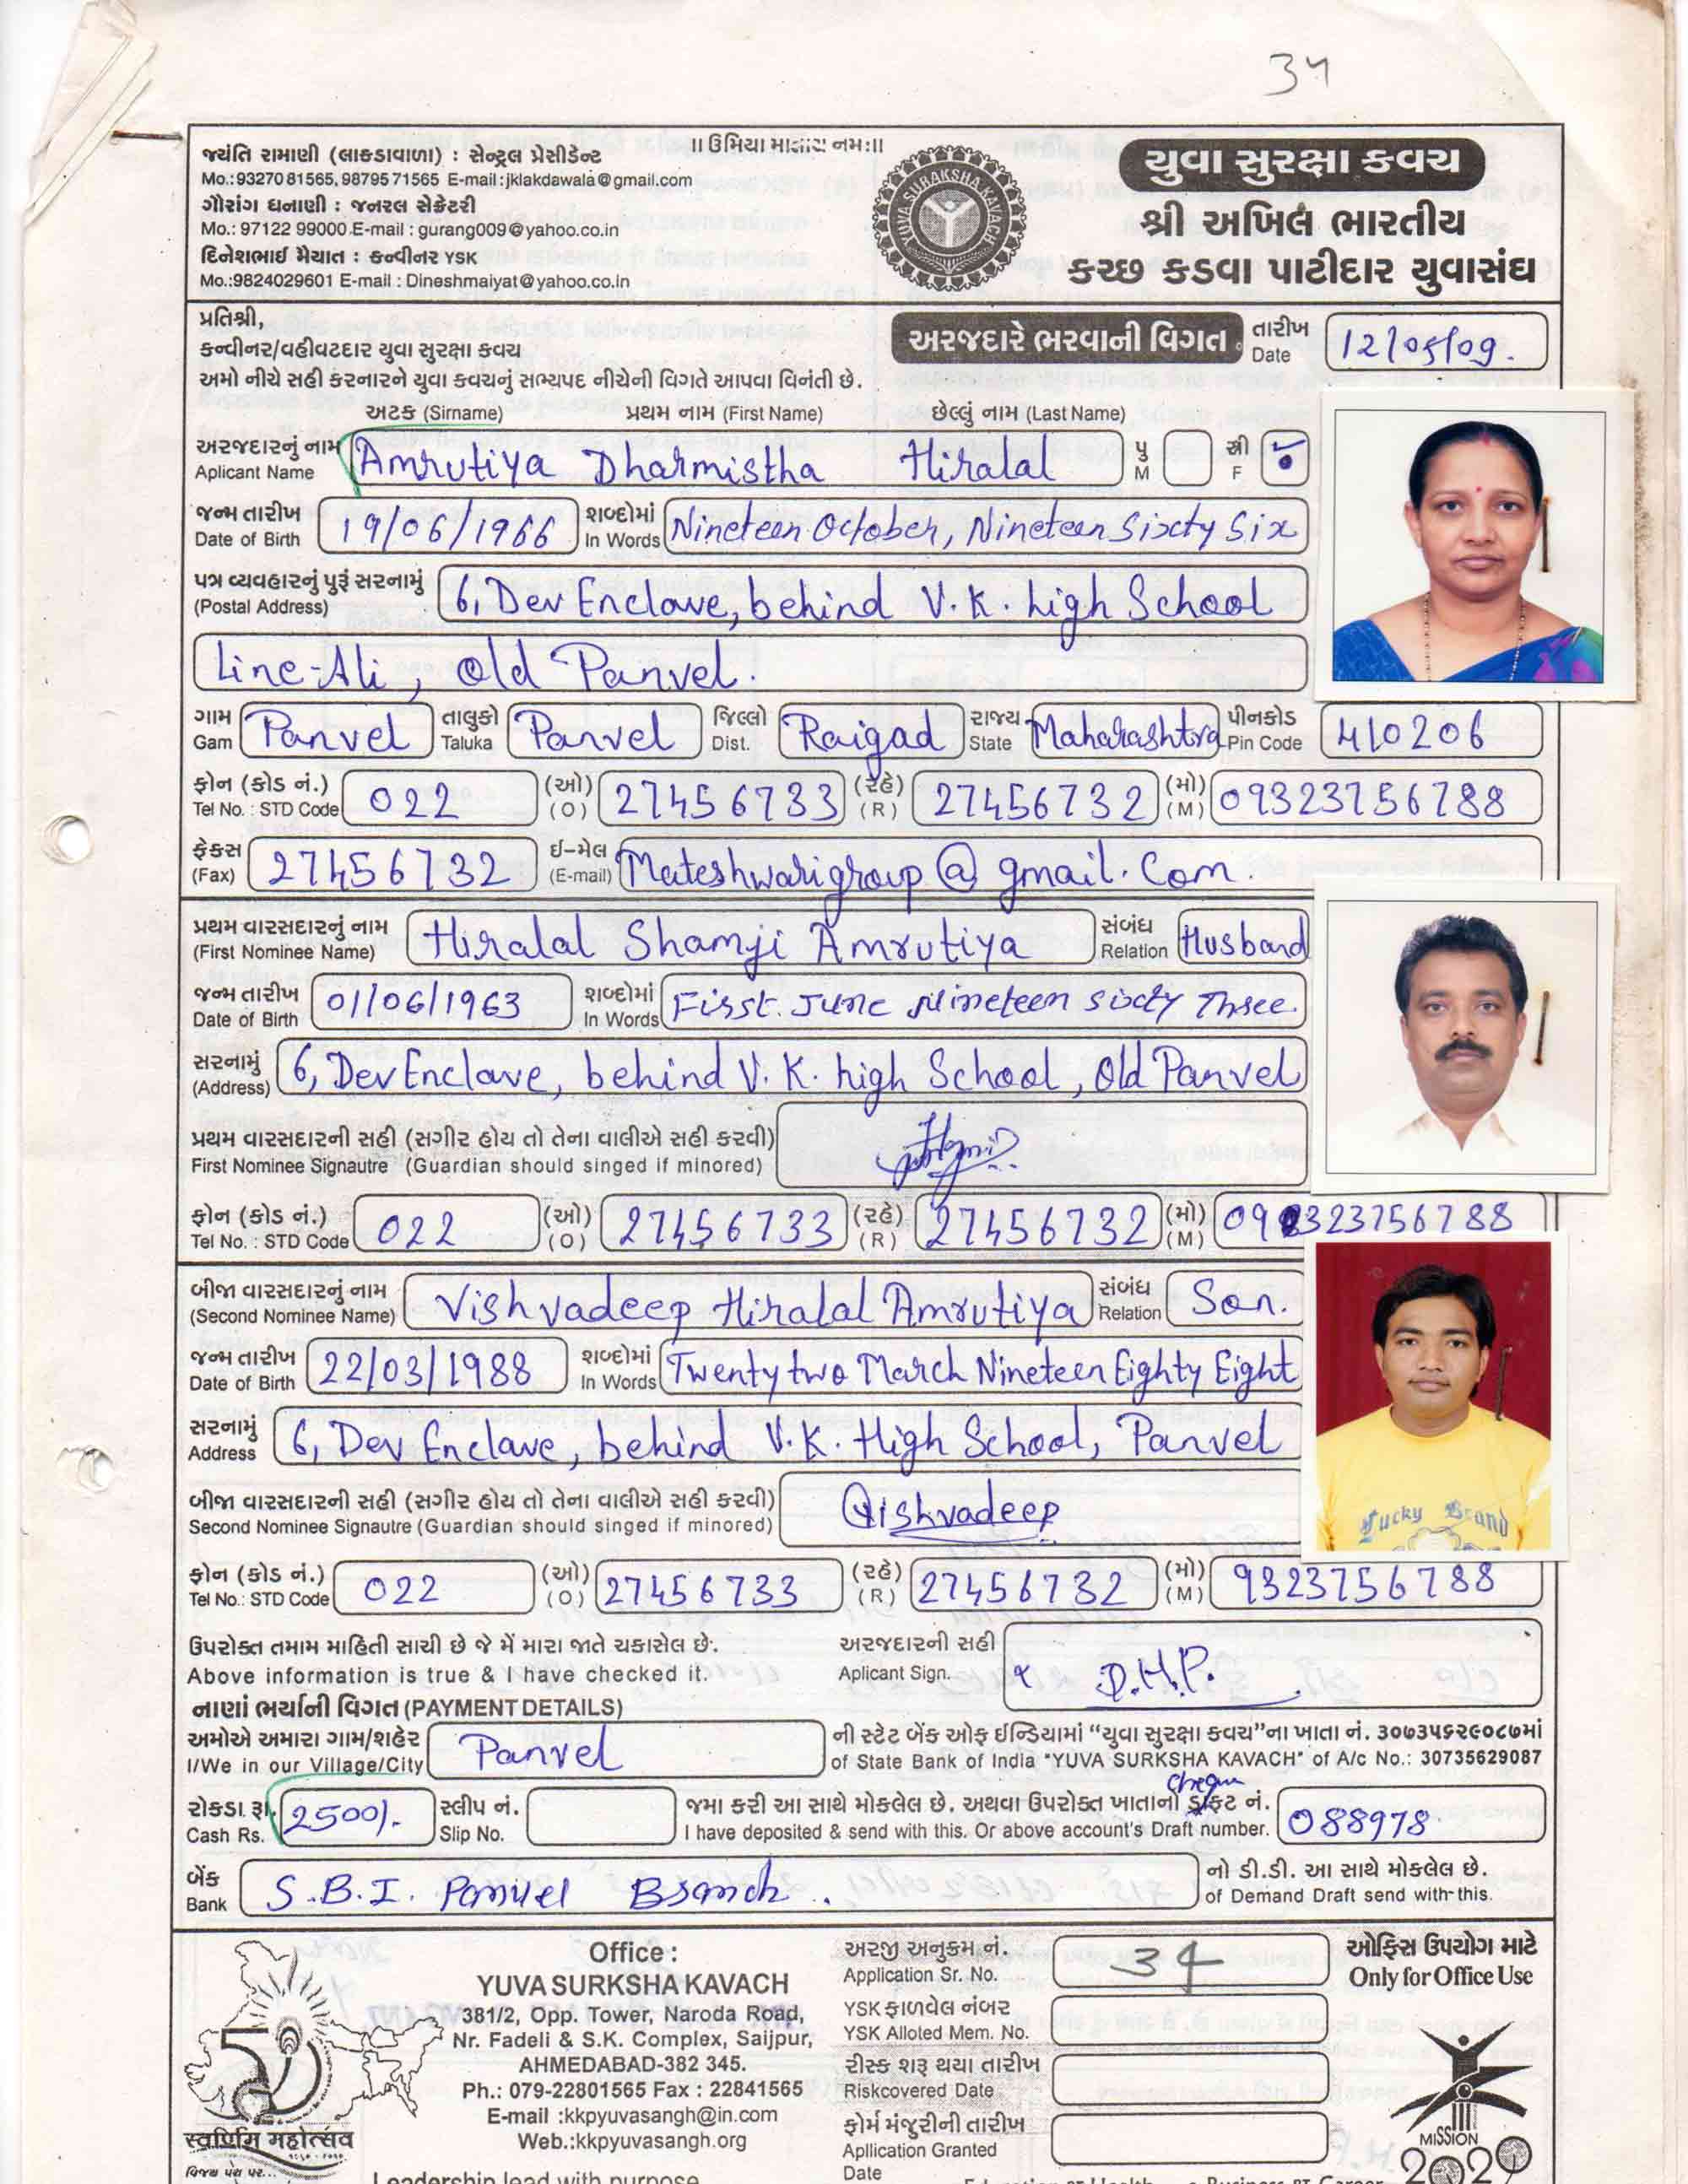 34
જયંતિ રામાણી (લાકડાવાળા) : સેન્ટ્રલ પ્રેસીડેન્ટ
Mo.:93270 81565, 98795 71565 E-mail:jklakdawala@gmail.com
ગૌરાંગ ધનાણી : જનરલ સેક્રેટરી
Mo.: 97122 99000 E-mail : gurang009@yahoo.co.in
દિનેશભાઈ મૈયાત : કન્વીનર YSK
Mo.:9824029601 E-mail : Dineshmaiyat@yahoo.co.in
।। ઉમિયા માતાય નમ:।।
YUVA SURAKSHA KAVACH
યુવા સુરક્ષા કવચ
શ્રી અખિલ ભારતીય
કચ્છ કડવા પાટીદાર યુવાસંઘ
પ્રતિશ્રી,
કન્વીનર/વહીવટદાર યુવા સુરક્ષા કવચ
અમો નીચે સહી કરનારને યુવા કવચનું સભ્યપદ નીચેની વિગતે આપવા વિનંતી છે.
અરજદારે ભરવાની વિગત તારીખ Date 12/05/09.
અટક (Sirname) પ્રથમ નામ (First Name) છેલ્લું નામ (Last Name)
અરજદારનું નામ Aplicant Name Amrutiya Dharmistha Hiralal પુ M સ્ત્રી F
જન્મ તારીખ Date of Birth 19/06/1966 શબ્દોમાં In Words Nineteen October, Nineteen Sixty Six
પત્ર વ્યવહારનું પુરૂં સરનામું (Postal Address) 6, Dev Enclave, behind V. K. high School
Line-Ali, old Panvel.
ગામ Gam Panvel તાલુકો Taluka Panvel જિલ્લો Dist. Raigad રાજ્ય State Maharashtra પીનકોડ Pin Code 410206
ફોન (કોડ નં.) Tel No. : STD Code 022 (ઓ) (O) 27456733 (રહે) (R) 27456732 (મો) (M) 09323756788
ફેક્સ (Fax) 27456732 ઈ-મેલ (E-mail) Mateshwarigroup @ gmail. Com.
પ્રથમ વારસદારનું નામ (First Nominee Name) Hiralal Shamji Amrutiya સંબંધ Relation Husband
જન્મ તારીખ Date of Birth 01/06/1963 શબ્દોમાં In Words First. June Nineteen sixty Three.
સરનામું (Address) 6, Dev Enclave, behind V. K. high School, Old Panvel
પ્રથમ વારસદારની સહી (સગીર હોય તો તેના વાલીએ સહી કરવી)
First Nominee Signautre (Guardian should singed if minored)
ફોન (કોડ નં.) Tel No. : STD Code 022 (ઓ) (O) 27456733 (રહે) (R) 27456732 (મો) (M) 09323756788
બીજા વારસદારનું નામ (Second Nominee Name) Vishvadeep Hiralal Amrutiya સંબંધ Relation Son.
જન્મ તારીખ Date of Birth 22/03/1988 શબ્દોમાં In Words Twenty two March Nineteen Eighty Eight
સરનામું Address 6, Dev Enclave, behind V. K. High School, Panvel
બીજા વારસદારની સહી (સગીર હોય તો તેના વાલીએ સહી કરવી)
Second Nominee Signautre (Guardian should singed if minored) Vishvadeep
Lucky Brand
ફોન (કોડ નં.) Tel No.: STD Code 022 (ઓ) (O) 27456733 (રહે) (R) 27456732 (મો) (M) 9323756788
ઉપરોક્ત તમામ માહિતી સાચી છે જે મેં મારા જાતે ચકાસેલ છે.
Above information is true & I have checked it.
અરજદારની સહી Aplicant Sign. x D.H.P.
નાણાં ભર્યાની વિગત (PAYMENT DETAILS)
અમોએ અમારા ગામ/શહેર I/We in our Village/City Panvel
ની સ્ટેટ બેંક ઓફ ઈન્ડિયામાં “યુવા સુરક્ષા કવચ”ના ખાતા નં. ૩૦૭૩૫૬૨૯૦૮૭માં
of State Bank of India "YUVA SURKSHA KAVACH" of A/c No.: 30735629087
Cheque
રોકડા રૂા. Cash Rs. 2500/- સ્લીપ નં. Slip No. જમા કરી આ સાથે મોકલેલ છે. અથવા ઉપરોક્ત ખાતાનો ડ્રાફ્ટ નં.
I have deposited & send with this. Or above account's Draft number. 088978
બેંક Bank S.B.I. Panvel Branch. નો ડી.ડી. આ સાથે મોકલેલ છે.
of Demand Draft send with-this.
50
स्वर्णिम महोत्सव
Office :
YUVA SURKSHA KAVACH
381/2, Opp. Tower, Naroda Road,
Nr. Fadeli & S.K. Complex, Saijpur,
AHMEDABAD-382 345.
Ph.: 079-22801565 Fax : 22841565
E-mail :kkpyuvasangh@in.com
Web.:kkpyuvasangh.org
Leadership lead with purpose
અરજી અનુક્રમ નં. Application Sr. No. 34
YSK ફાળવેલ નંબર YSK Alloted Mem. No.
રીસ્ક શરૂ થયા તારીખ Riskcovered Date
ફોર્મ મંજુરીની તારીખ Apllication Granted Date
ઓફિસ ઉપયોગ માટે
Only for Office Use
MISSION